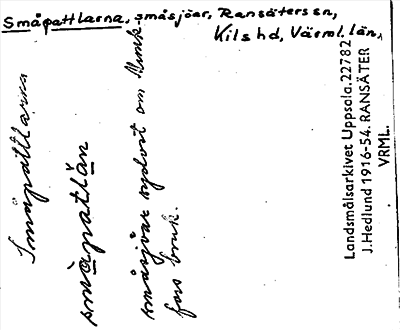 Småpattlarna, småsjöar, Ransäters sn,
Kils hd, Värml. län,
Småpattlarna
småpattlän
småsjöar sydost om Munk-
fors bruk.
Landsmålsarkivet Uppsala. 22782
J. Hedlund 1916-54. RANSÄTER
VRML.